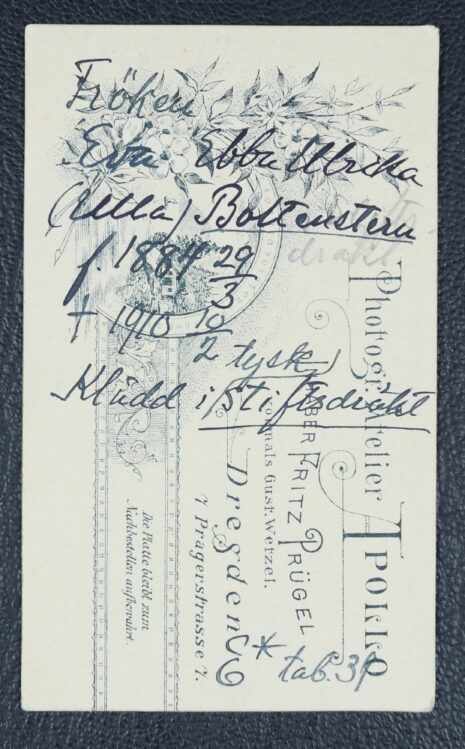 Fröken
Eva Ebba Ulrika
(Ulla) Bottenstern
f. 1884 29/3
† 1910 10/2
tysk
Klädd i stiftsdräkt
drakt
* tab. 34
Photogr. Atelier Apollo
Inhaber Fritz Prügel
vormals Gust. Wetzel.
Dresden
7 Pragerstrasse 7.
Die Platte bleibt zum
Nachbestellen aufbewahrt.